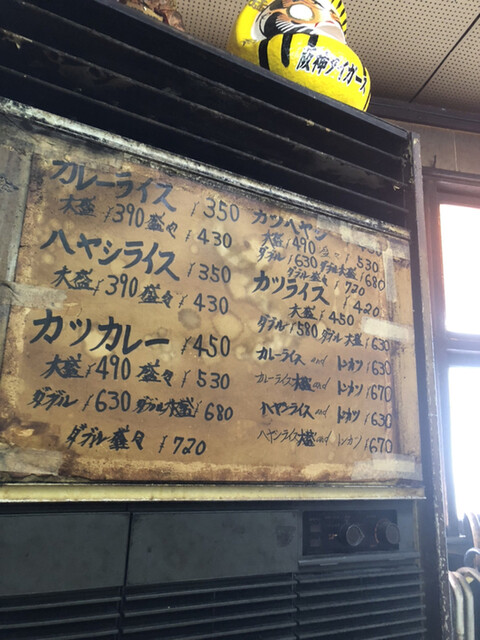 阪神タイガース
カレーライス ¥350
大盛 ¥390 盛々 ¥430
ハヤシライス ¥350
大盛 ¥390 盛々 ¥430
カツカレー ¥450
大盛 ¥490 盛々 ¥530
ダブル ¥630 ダブル大盛 ¥680
ダブル盛々 ¥720
カツハヤシ
大盛 ¥490 盛々 ¥530
ダブル ¥630 ダブル大盛 ¥680
ダブル盛々 ¥720
カツライス ¥420
大盛 ¥450
ダブル ¥580 ダブル大盛 ¥630
カレーライス and トンカツ ¥630
カレーライス大盛 and トンカツ ¥670
ハヤシライス and トンカツ ¥630
ハヤシライス大盛 and トンカツ ¥670